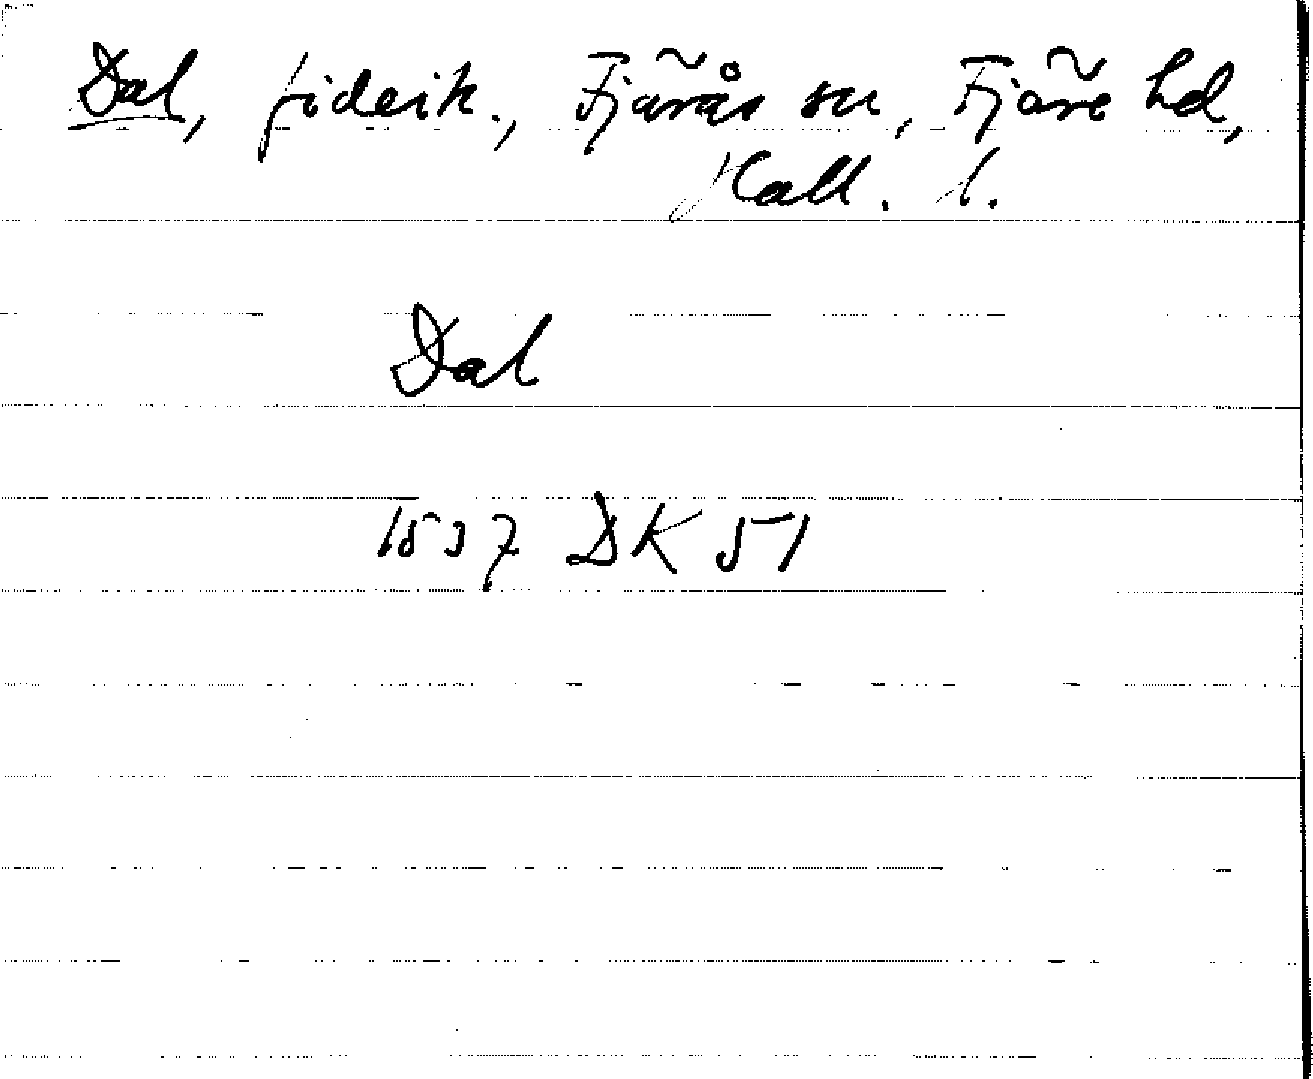 Dal, fideik., Fjärås sn, Fjäre hd,
Hall. l.
Dal
1537 DK 51